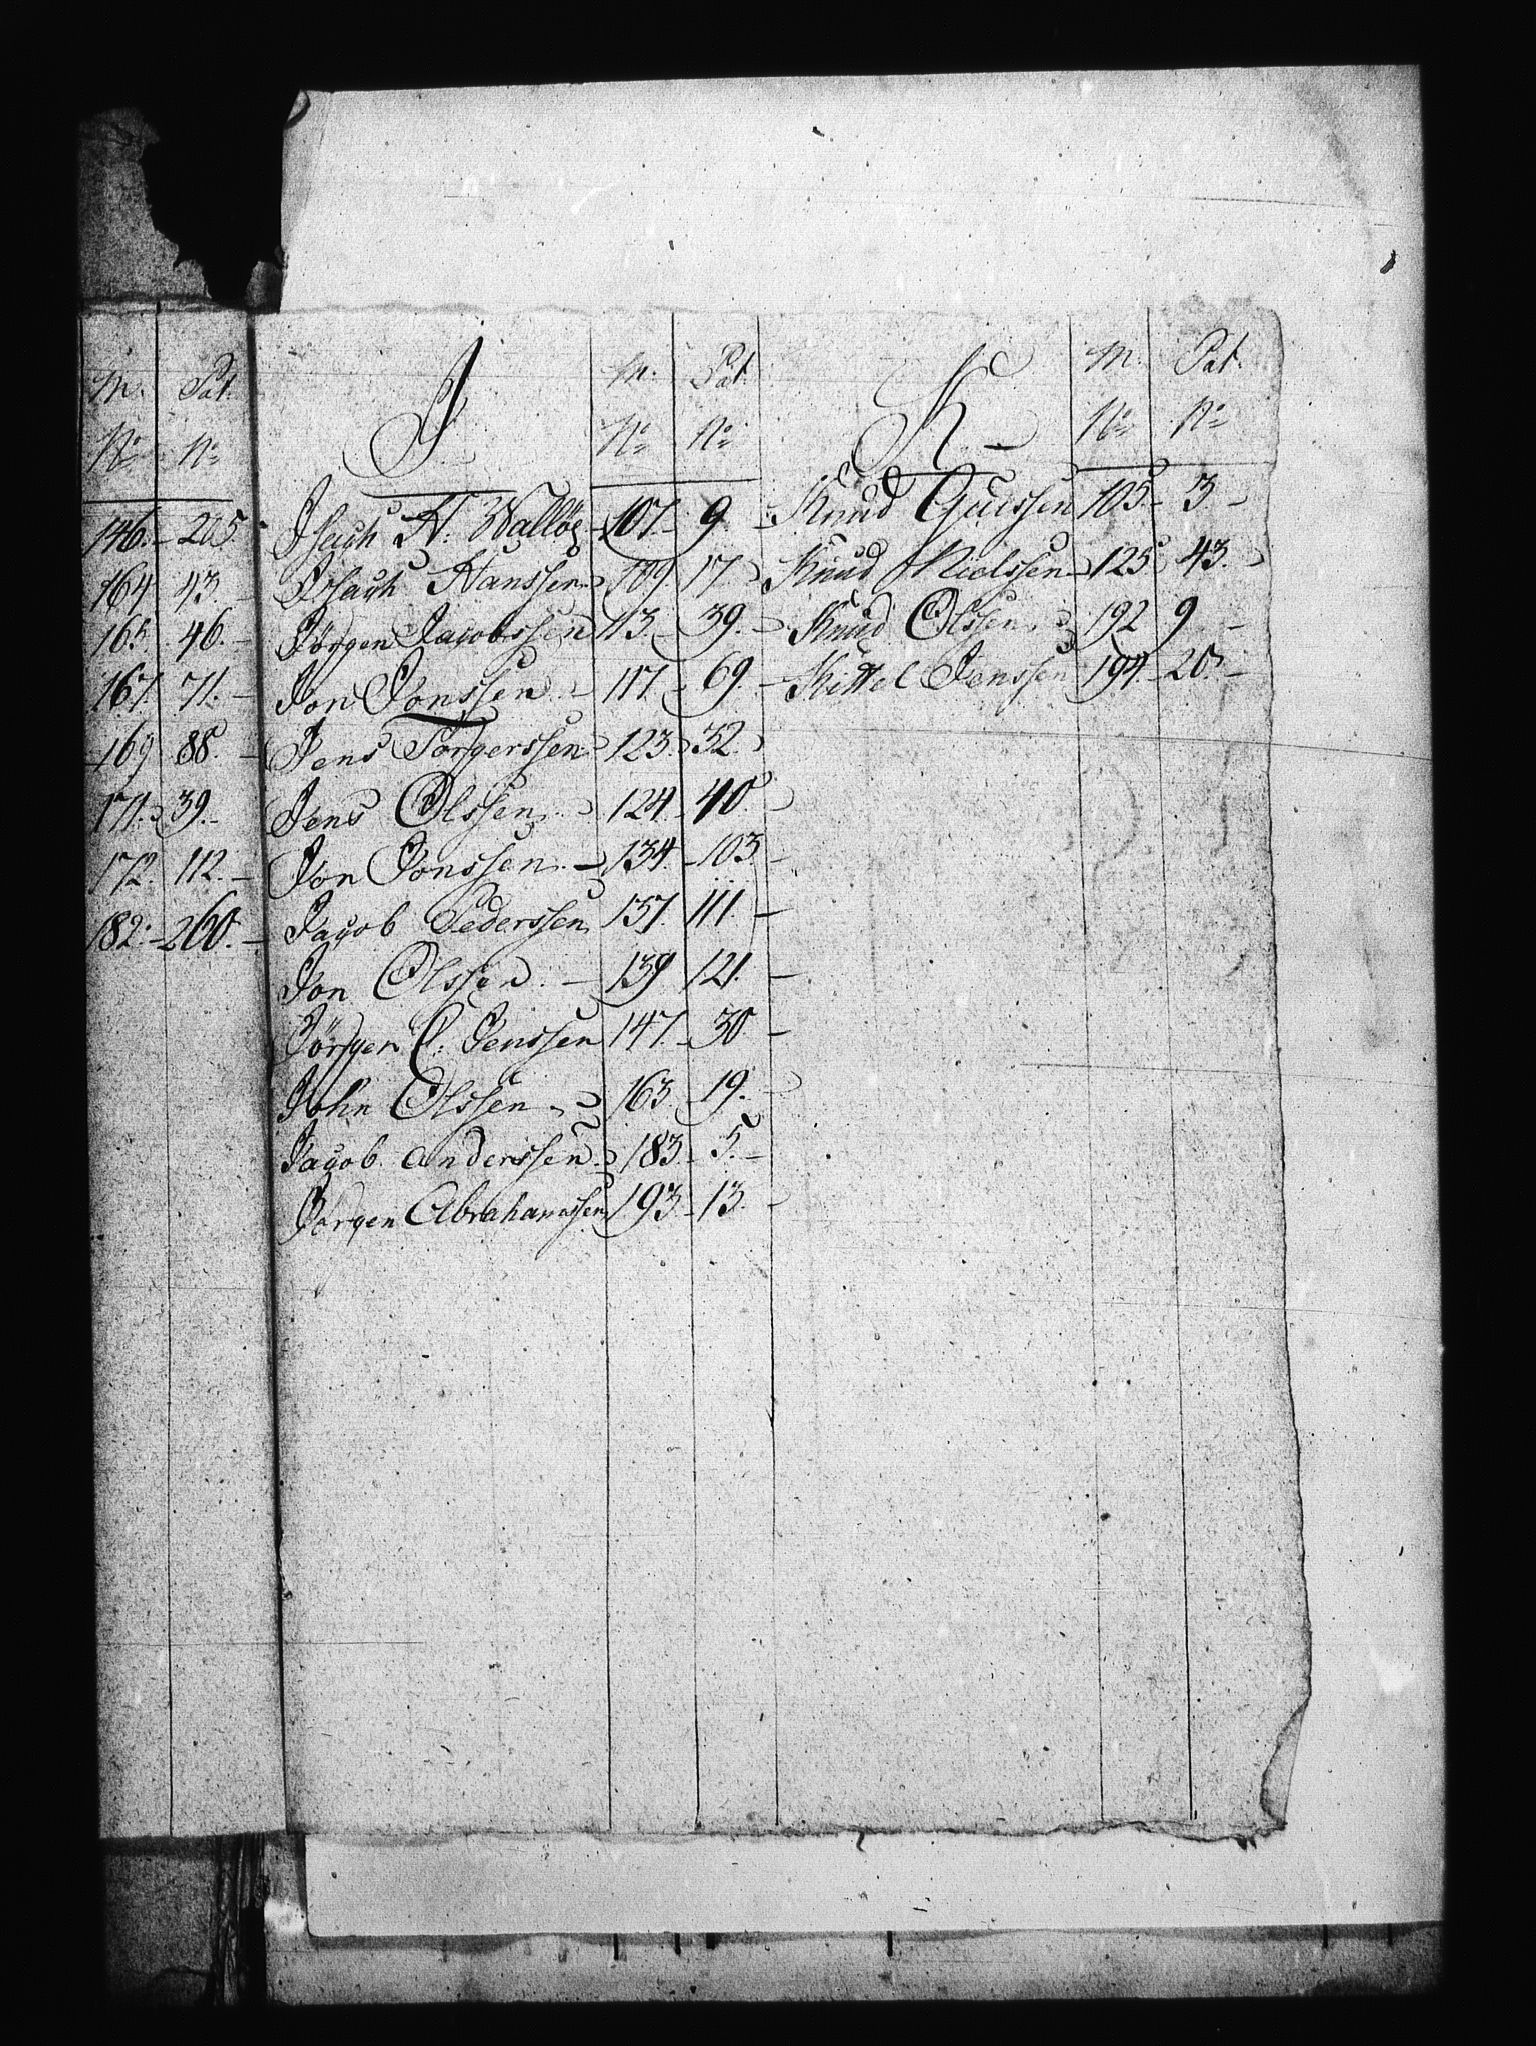 M: Pat:
No No
146. 205
164 43.
165. 46.
167. 71.
169 88.
171. 39.
172. 112.
182. 260.
I M. Pat.
No No
Isach H. Walløe 107. 9
Isach Hanssen 109 17.
Jörgen Jacobssen 113. 39.
Jon Jonssen 117. 69.
Jens Torgerssen 123. 32.
Jens Olssen 124. 40.
Jon Jonssen 134. 103
Jacob Pederssen 137. 111.
Jon Olssen 139 121.
Jörgen C. Jenssen 147. 30
John Olssen 163 19.
Jacob Anderssen 183. 5.
Jörgen Abrahamssen 193. 13.
K M. Pat.
No No
Knud 105. 3.
Knud Nielssen 125 43.
Knud Olssen 192 9
Kittel Jenssen 194. 20.